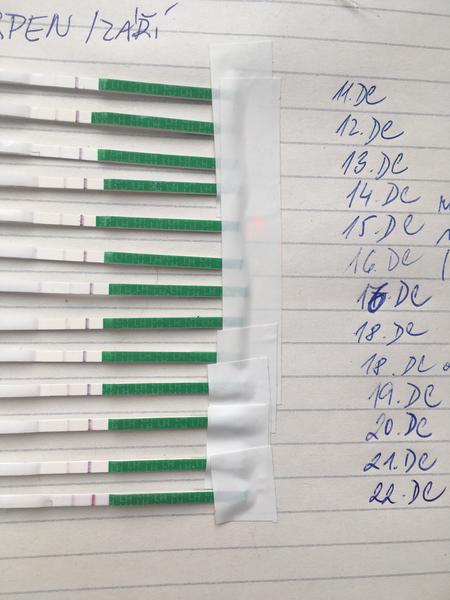 RPEN / ZÁŘÍ
11. DC
12. DC
13. DC
14. DC
15. DC
16. DC
16. DC
18. DC
18. DC
19. DC
20. DC
21. DC
22. DC